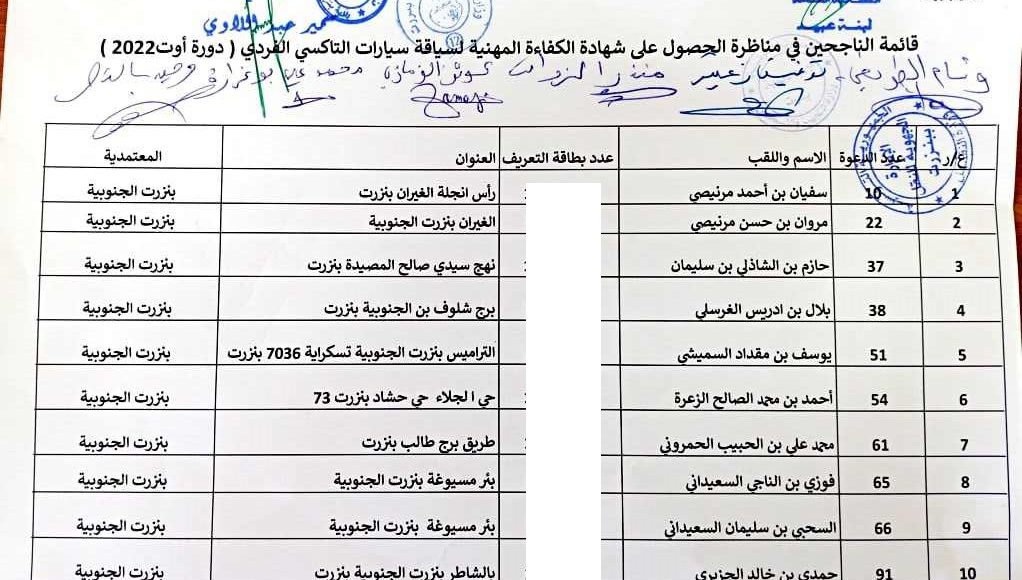 سمير عبد اللاوي
لبنة عبيد
قائمة الناجحين في مناظرة الحصول على شهادة الكفاءة المهنية لسياقة سيارات التاكسي الفردي ( دورة أوت2022 )
ع/ر عدد الدعوة الاسم واللقب عدد بطاقة التعريف العنوان المعتمدية
1 10 سفيان بن أحمد مرنيصي رأس انجلة الغيران بنزرت بنزرت الجنوبية
2 22 مروان بن حسن مرنيصي الغيران بنزرت الجنوبية بنزرت الجنوبية
3 37 حازم بن الشاذلي بن سليمان نهج سيدي صالح المصيدة بنزرت بنزرت الجنوبية
4 38 بلال بن ادريس الغرسلي برج شلوف بن الجنوبية بنزرت بنزرت الجنوبية
5 51 يوسف بن مقداد السميشي التراميس بنزرت الجنوبية تسكراية 7036 بنزرت بنزرت الجنوبية
6 54 أحمد بن محمد الصالح الزعرة حي الجلاء حي حشاد بنزرت 73 بنزرت الجنوبية
7 61 محمد علي بن الحبيب الحمروني طريق برج طالب بنزرت بنزرت الجنوبية
8 65 فوزي بن الناجي السعيداني بئر مسيوغة بنزرت الجنوبية بنزرت الجنوبية
9 66 السحبي بن سليمان السعيداني بئر مسيوغة بنزرت الجنوبية بنزرت الجنوبية
10 91 حمدي بن خالد الجزيري بالشاطر بنزرت الجنوبية بنزرت بنزرت الجنوبية